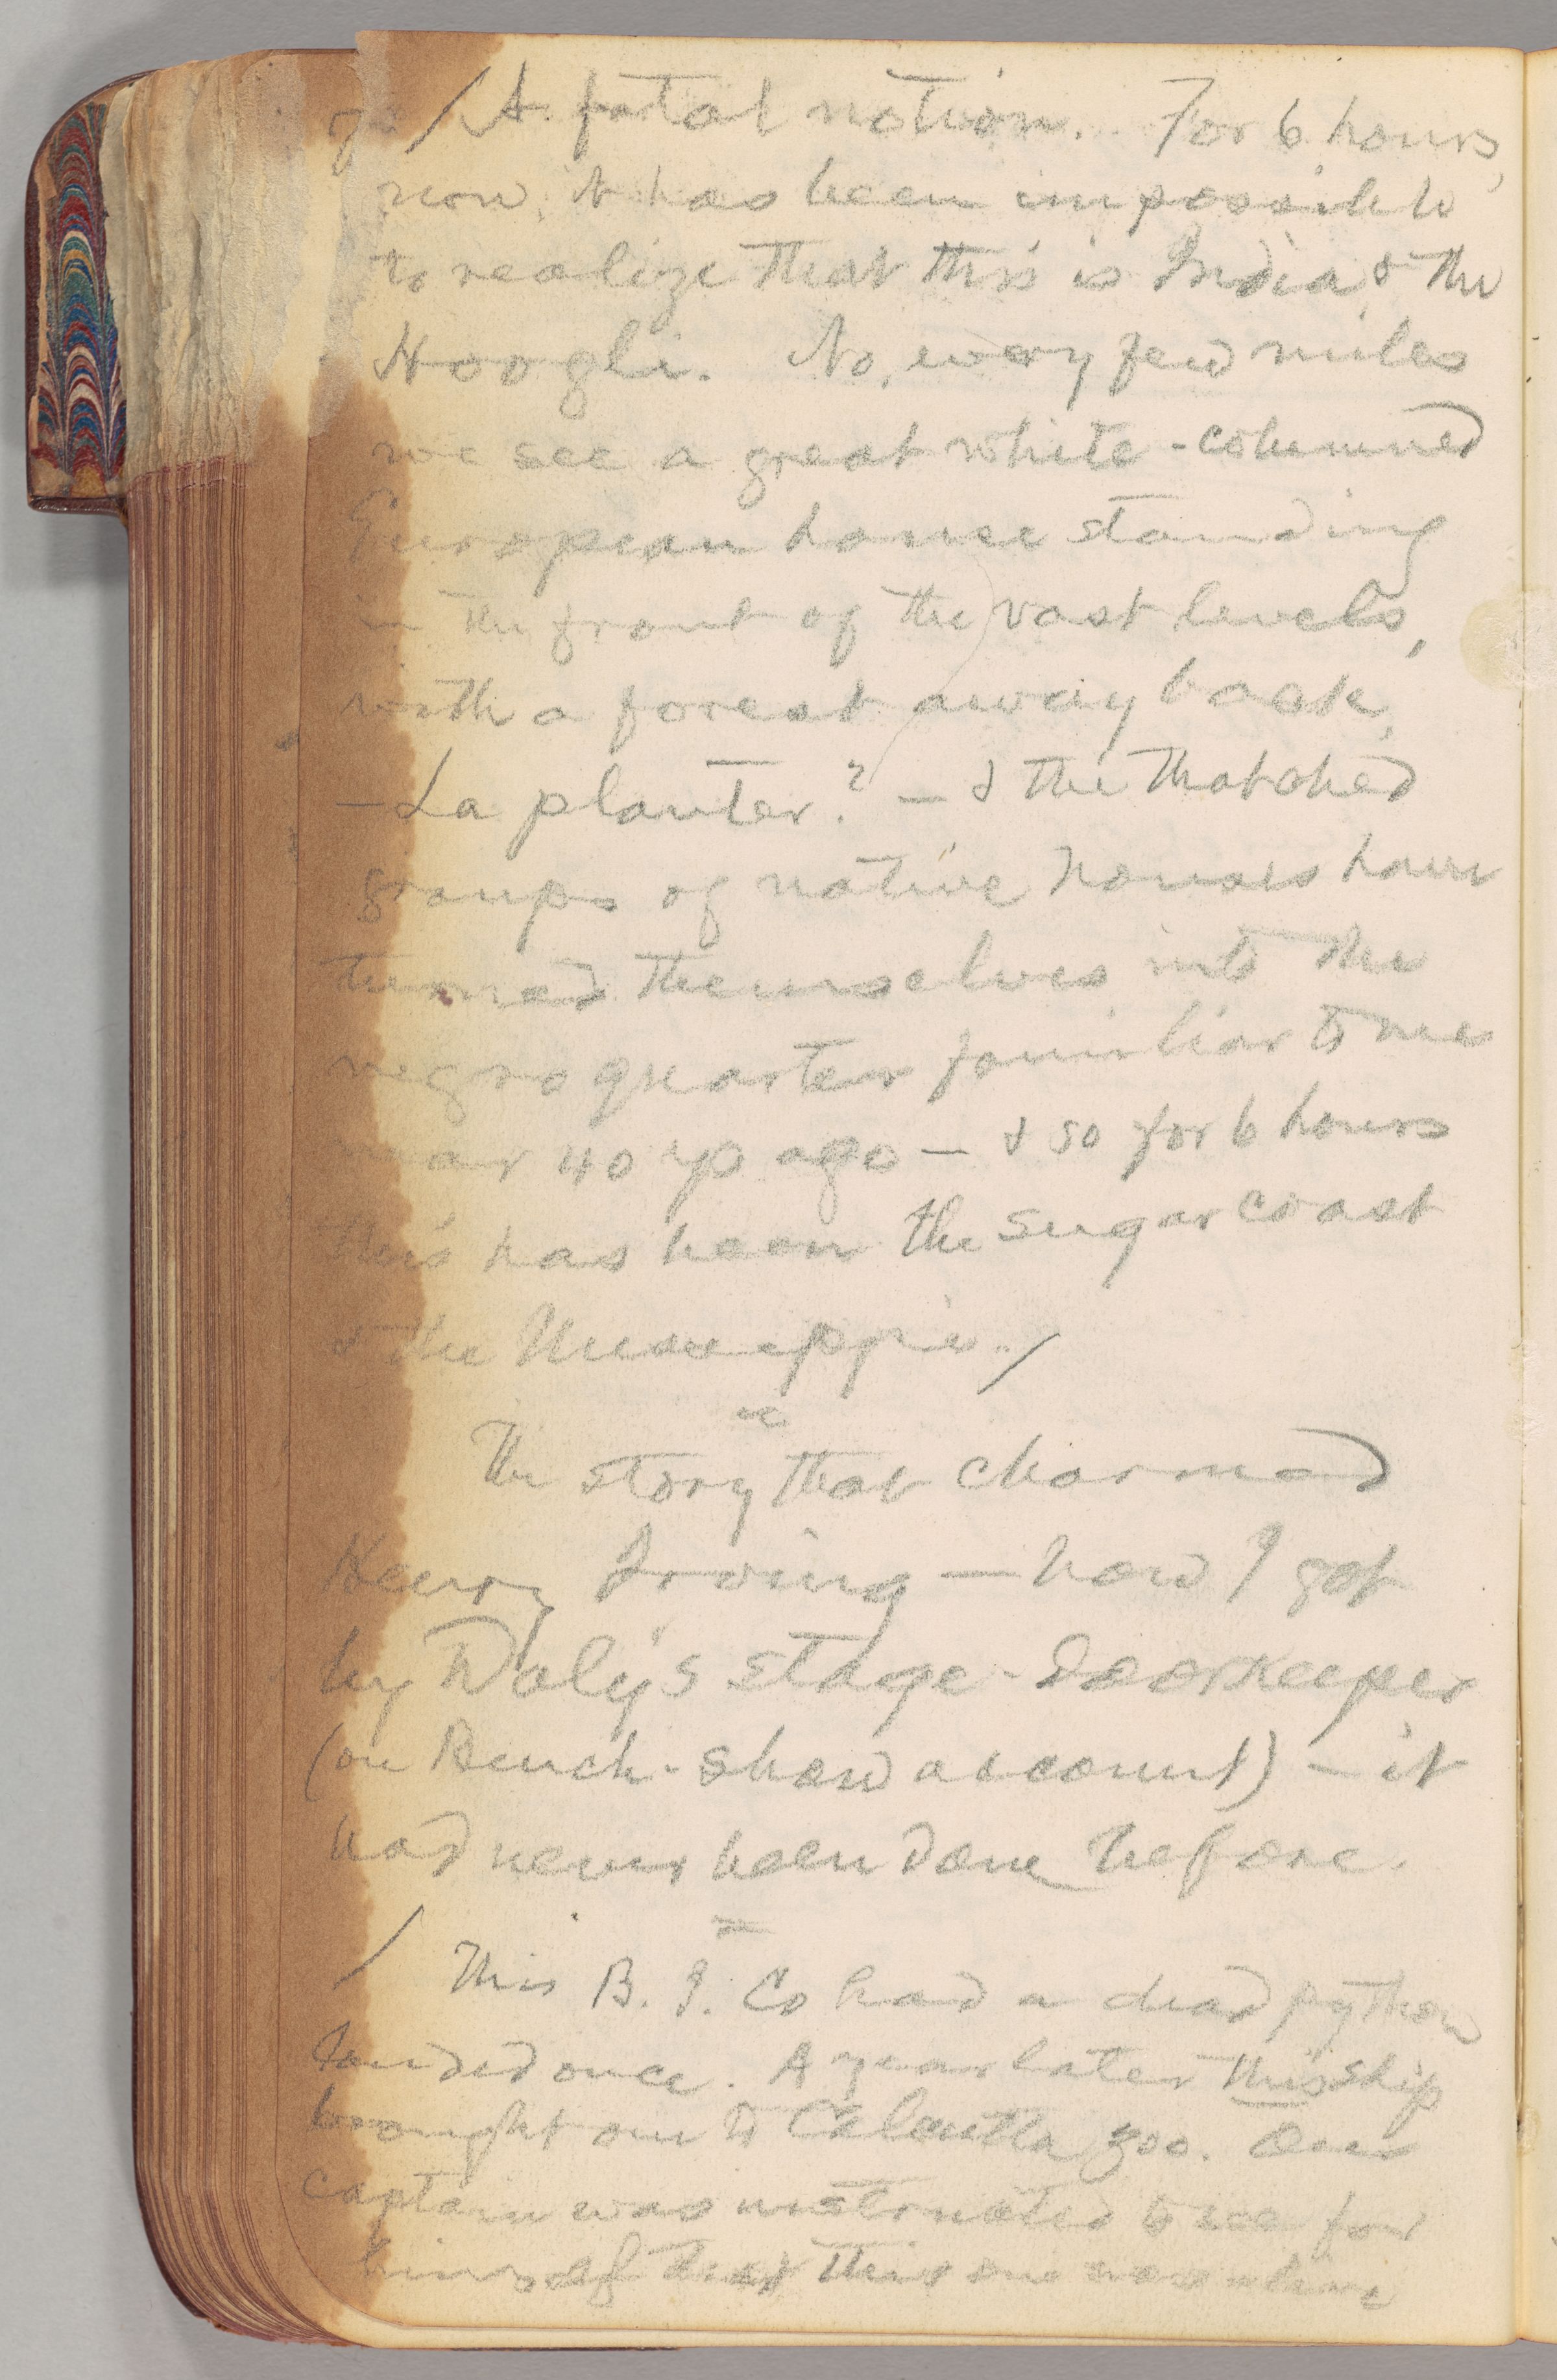 / A fatal notion. For 6 hours,
now, it has been impossible
to realize that this is India & the
Hoogli. No, every few miles
we see a great white-columned
European house standing
in the front of the vast levels,
with a forest away back,
— La planter? — & the thatched
groups of native houses have
turned themselves into the
negro quarters familiar to me
near 40 ys ago — & so for 6 hours
this has been the sugar coast
& the Mississippi. /
The story that charmed
Henry Irving — how I got
by Daly's stage-doorkeeper
(on Bench-show account) — it
had never been done before.
/ This B. I. Co had a dead python
landed once. A year later this ship
brought one to Calcutta zoo. Our
captain was instructed to see for
himself that this one was alive